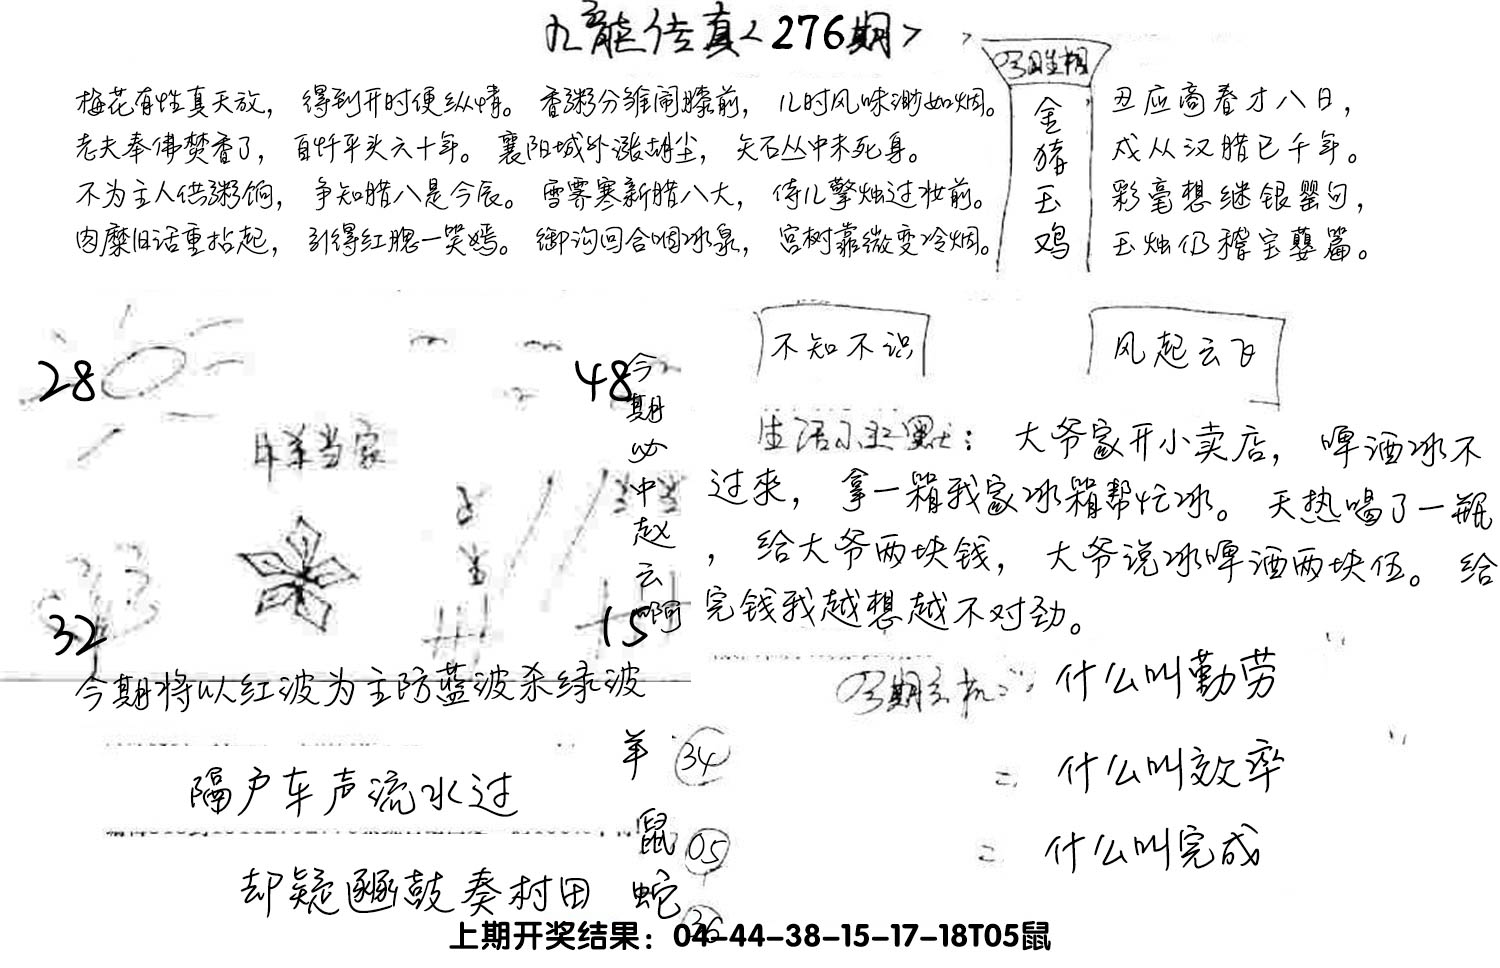 九龙传真<276期>
梅花有性真天放，得到开时便纵情。香粥分雏闹膝前，儿时风味渺如烟。
老夫奉佛焚香了，自忖平头六十年。襄阳城外涨胡尘，矢石丛中未死身。
不为主人供粥饷，争知腊八是今辰。雪霁寒新腊八大，侍儿擎烛过妆前。
肉糜旧话重拈起，引得红腮一笑嫣。御沟回合咽冰泉，宫树靠微变冷烟。
金
猪
玉
鸡
丑应商春才八日，
戍从汉腊已千年。
彩毫想继银罂句，
玉烛仍稽宝蘡篇。
28
48
32
15
当家
今
期
必
中
赵
云
啊
不知不识
风起云飞
生活小幽默：大爷家开小卖店，啤酒冰不
过来，拿一箱我家冰箱帮忙冰。天热喝了一瓶
，给大爷两块钱，大爷说冰啤酒两块伍。给
完钱我越想越不对劲。
今期将以红波为主防蓝波杀绿波
隔户车声流水过
却疑豳鼓奏村田
羊 34
鼠 05
蛇 36
什么叫勤劳
= 什么叫效率
= 什么叫完成
上期开奖结果：04-44-38-15-17-18T05鼠